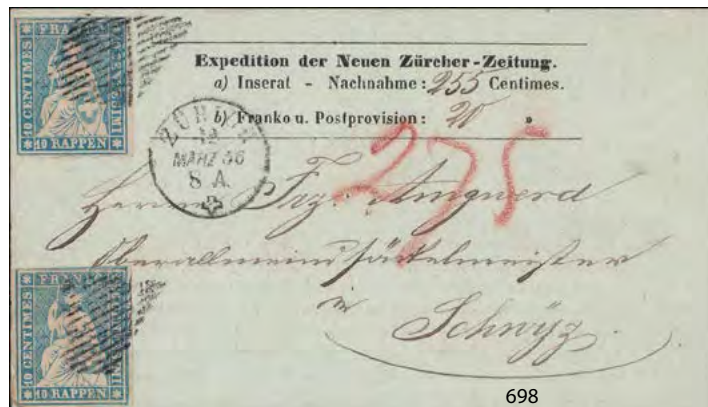 FRANCO
10 CENTIMES
10 RAPPEN
Expedition der Neuen Zürcher-Zeitung.
a) Inserat - Nachnahme: 255 Centimes.
b) Franko u. Postprovision: 20 "
ZÜRICH
12
MÄRZ 56
8 A.
275
Herrn Faz: Amgwerd
Oberallmeindsäckelmeister
in
Schwyz.
FRANCO
10 CENTIMES
10 RAPPEN
698